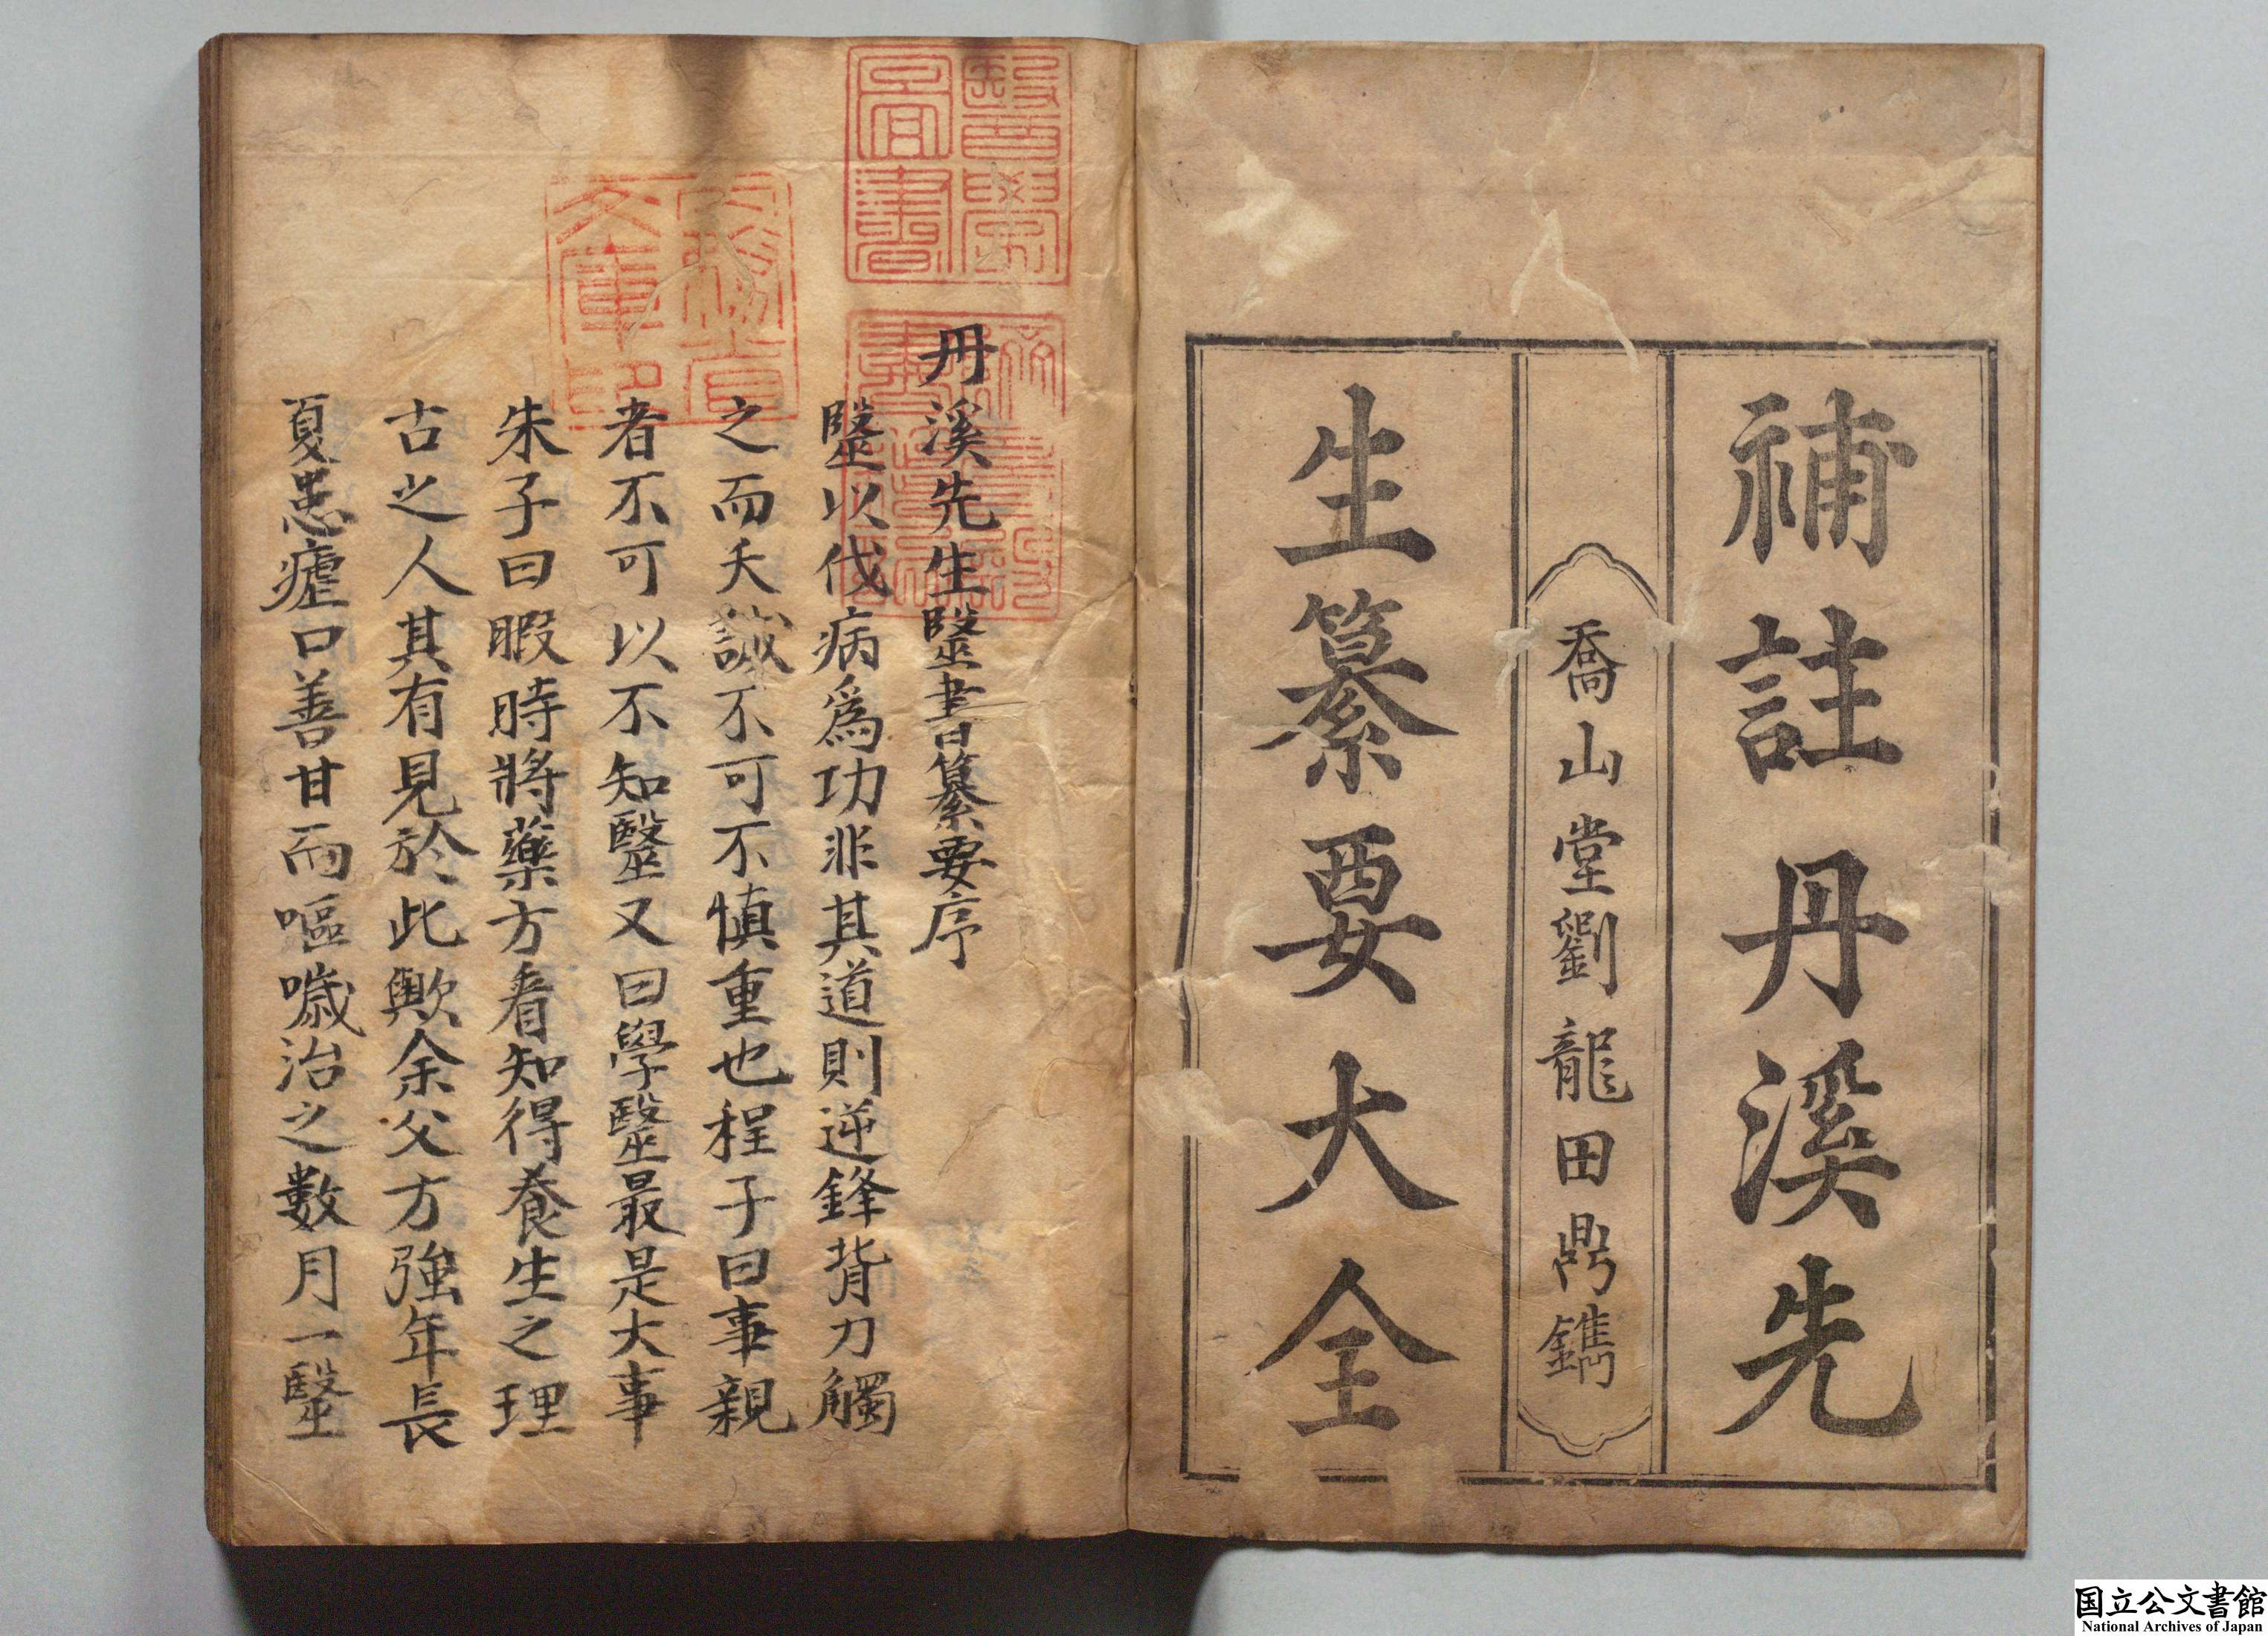 補註丹溪先
喬山堂劉龍田鼎鐫
生纂要大全
丹溪先生毉書纂要序
毉以伐病爲功非其道則逆鋒背刀觸
之而夭誠不可不慎重也程子曰事親
者不可以不知毉又曰學毉最是大事
朱子曰暇時將藥方看知得養生之理
古之人其有見於此歟余父方強年長
夏患瘧口善甘而嘔噦治之數月一毉
醫學圖書
文庫印
国立公文書館
National Archives of Japan